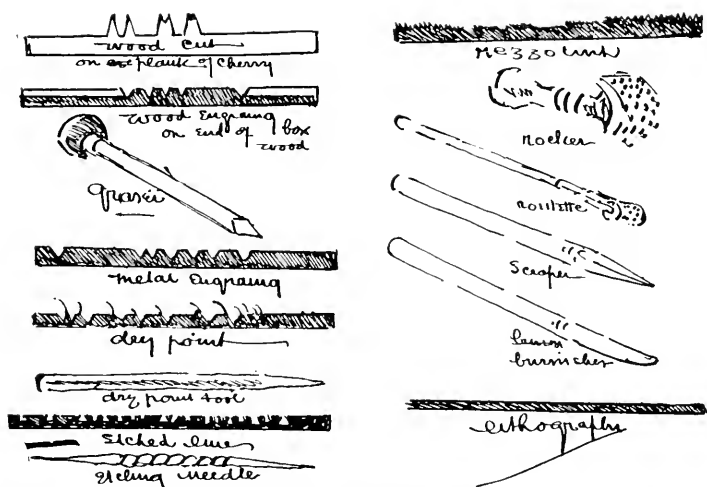 wood cut
on plank of cherry
wood Engraing
on End of box
wood
graver
metal Engraving
dry point
dry point tool
Etched line
Etching needle
mezzotint
rocker
roulette
Scraper
burnisher
lithograph